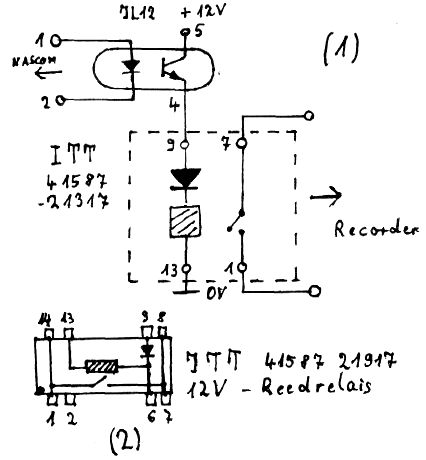 IL12 +12V
5
1
(1)
NASCOM
2
4
9 7
ITT
41587
-21317
Recorder
13 1
0V
14 13 9 8
ITT 41587 21917
12V - Reedrelais
1 2 6 7
(2)